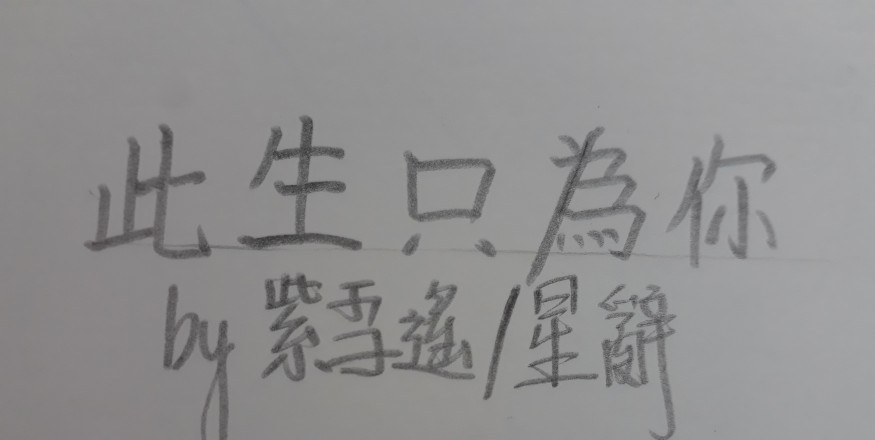 此生只為你
by 紫雪遙/星辭